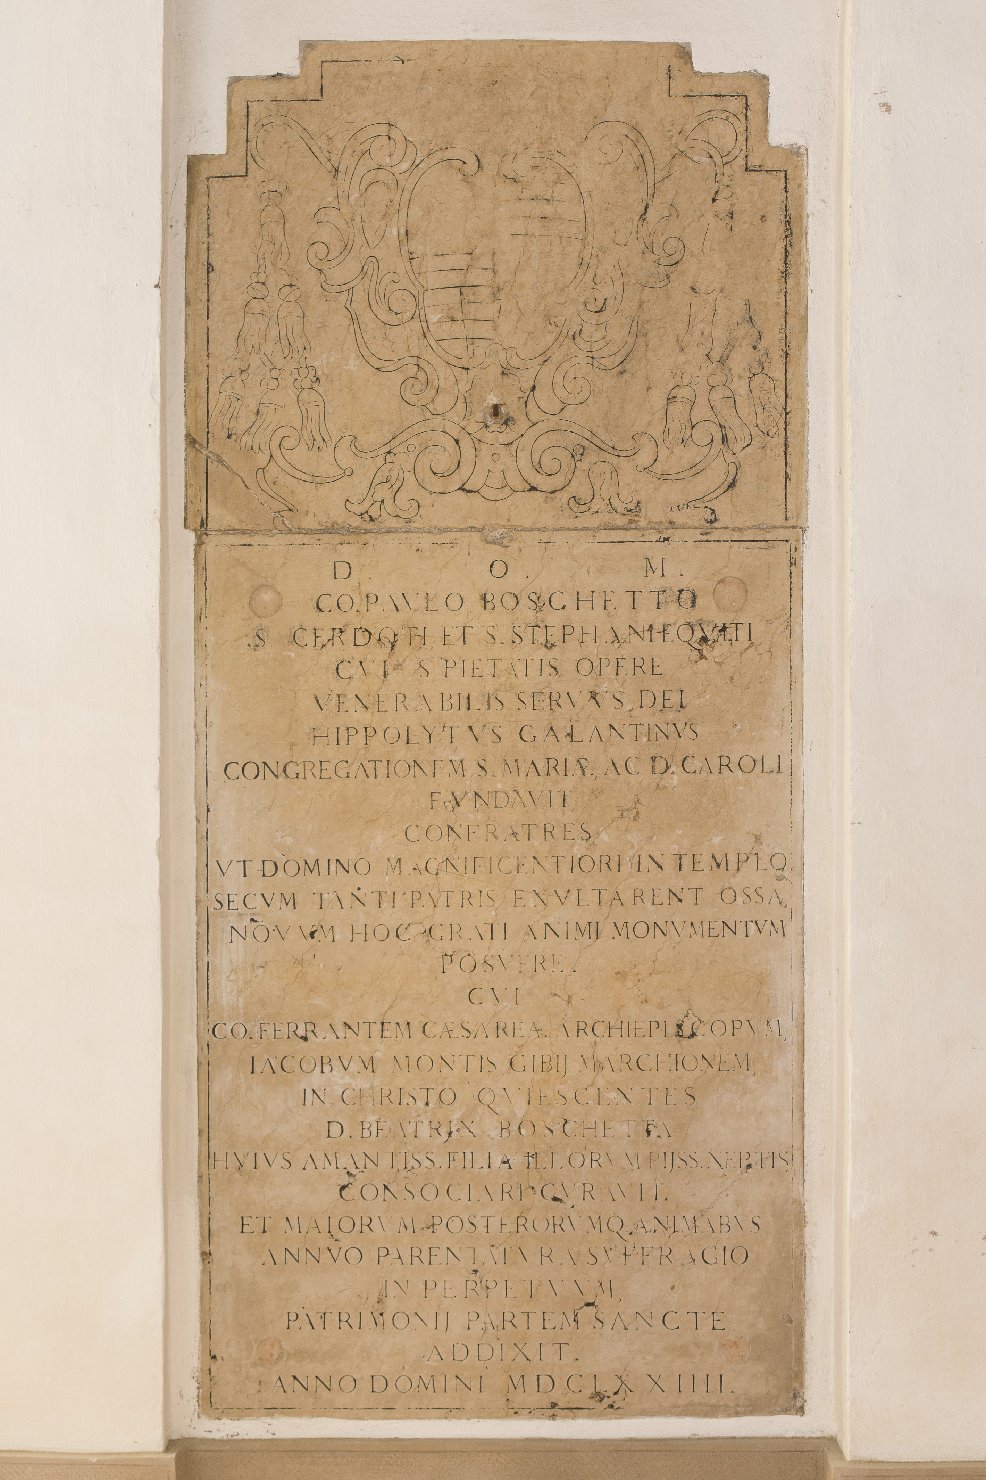 D. O. M.
CO. PAVLO BOSCHETTO
S CERDOTI ET S. STEPHANI EQVITI
CVI S PIETATIS OPERE
VENERABILIS SERVVS DEI
HIPPOLYTVS GALANTINVS
CONGREGATIONEM S. MARIÆ, AC D. CAROLI
FVNDAVIT
CONFRATRES
VT DOMINO MAGNIFICENTIORI IN TEMPLO
SECVM TANTI PATRIS EXVLTARENT OSSA,
NOVVM HOC GRATI ANIMI MONVMENTVM
POSVERE.
CVI
CO. FERRANTEM CÆSAREÆ ARCHIEPISCOPVM,
IACOBVM MONTIS GIBIJ MARCHIONEM
IN CHRISTO QVIESCENTES
D. BEATRIX BOSCHETTA
HVIVS AMANTISS. FILIA ILLORVM PIJSS. NEPTIS
CONSOCIARI CVRAVIT.
ET MAIORVM POSTERORVMQ. ANIMABVS
ANNVO PARENTATVRA SVFFRAGIO
IN PERPETVVM,
PATRIMONIJ PARTEM SANCTE
ADDIXIT.
ANNO DOMINI MDCLXXIIII.